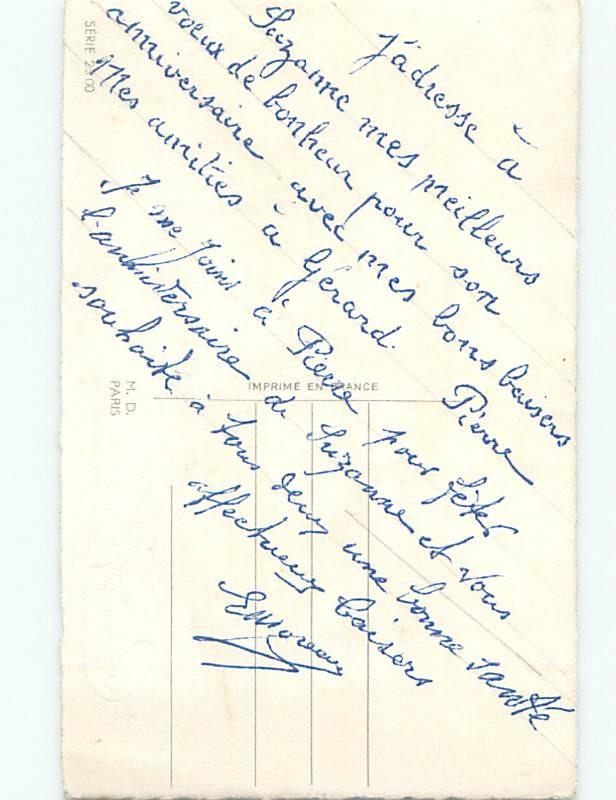 J'adresse à
Suzanne mes meilleurs
voeux de bonheur pour son
anniversaire avec mes bons baisers
Mes amitiés à Gérard. Pierre
Je me joins à Pierre pour fêter
l'anniversaire de Suzanne et vous
souhaite à tous deux une bonne santé
affectueux baisers
EMoreau
SÉRIE
IMPRIMÉ EN FRANCE
M. D.
PARIS